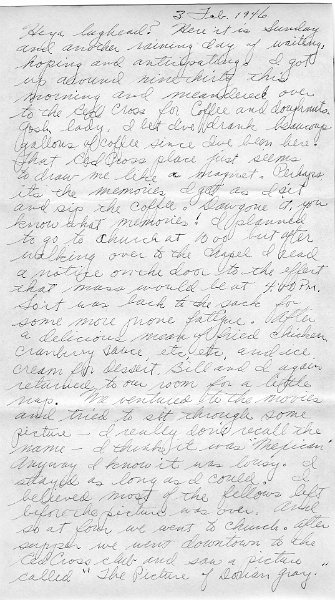 3 Feb. 1946
Heya lughead? Here it is Sunday
and another raining day of waiting,
hoping and anticipating. I got
up around nine thirty this
morning and meandered over
to the Red Cross for coffee and doughnuts.
Gosh lady, I bet I've drank beaucoup
gallons of coffee since I've been here.
That Red Cross place just seems
to draw me like a magnet. Perhaps
it's the memories I get as I sit
and sip the coffee. Dawgone it, you
know what memories! I planned
to go to church at 1000 but after
walking over to the chapel I read
a notice on the door to the effect
that mass would be at 4:00 P.M.
So it was back to the sack for
some more prone fatigue. After
a delicious meal of fried chicken,
cranberry sauce, etc, etc, and ice
cream for dessert, Bill and I again
returned to our room for a little
nap. We ventured to the movies
and tried to sit through some
picture - I really don't recall the
name - I think it was "Mexican"
Anyway I know it was lousy. I
stayed as long as I could. I
believed most of the fellows left
before the picture was over. And
so at four we went to church. After
supper we went downtown to the
Red Cross club and saw a picture
called "The Picture of Dorian Gray."